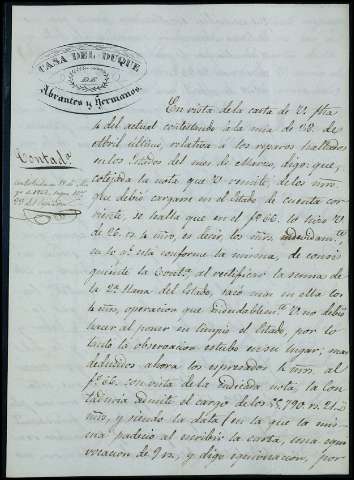 CASA DEL DUQUE
DE
Abrantes y Hermanos.
En vista de la carta de V. fha
4 del actual contestando á la mia de 28 de
Abril último, relativa á los reparos hallados
en los Estados del mes de Marzo, digo: que,
Contad.ª
cotejada la nota que V remite, de los mrs.
que debió cargarse en el Estado de cuenta cor-
riente, se halla que en el fº 66. lo hizo V
de 26. rs. 4 mrs, es decir, los mrs,
en lo q.e esta conforme la misma, de consi-
guiente la Cont.ª al rectificar la suma de
la 2ª llana del Estado, sacó mas en ella los
4 mrs, operacion que indudablem.te V no debió
hacer al poner en limpio el Estado, por lo
tanto la observacion estubo en su lugar; mas
deducidos ahora los espresados 4 mrs. al
fº 66. con vista de la indicada nota, la Con-
taduria admite el cargo de los 790 rs. 21.
mrs, y siendo la data (en la que la mis-
ma padeció al escribir la carta, una equi-
vocacion de 9 rs, y digo equivocacion, por